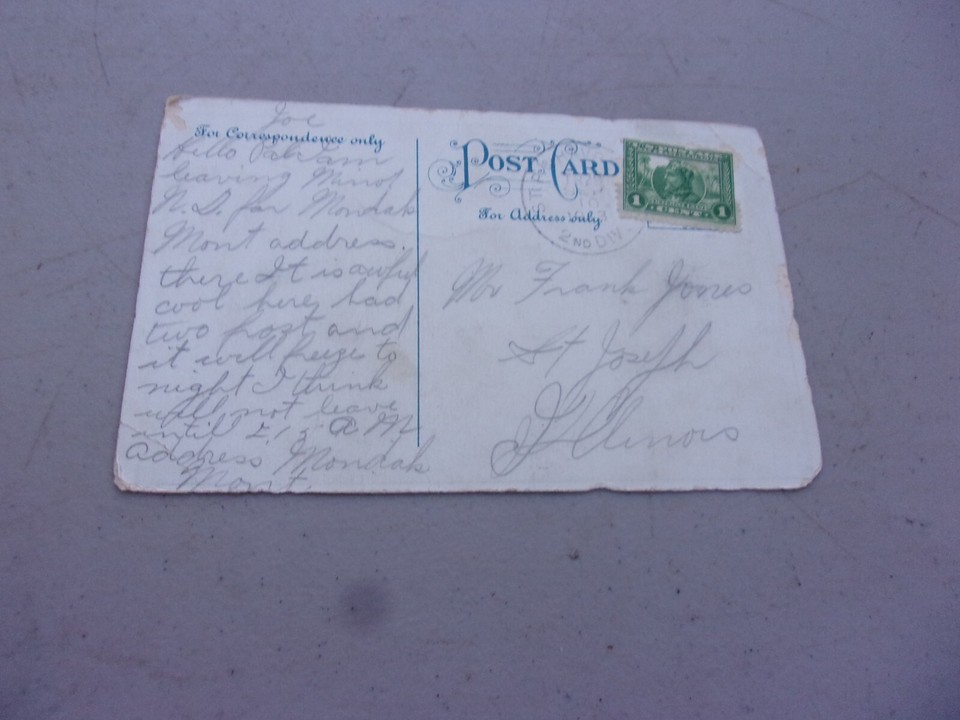 Joe
For Correspondence only
Hello Pal I am
leaving Minot
N. D. for Mondak
Mont address.
there It is awful
cool here, had
two frost and
it will freeze to
night I think
will not leave
until A M
Address Mondak
Mont.
POST CARD
For Address only
2ND DIV
1 CENT 1
Mr Frank Jones
St Joseph
Illinois